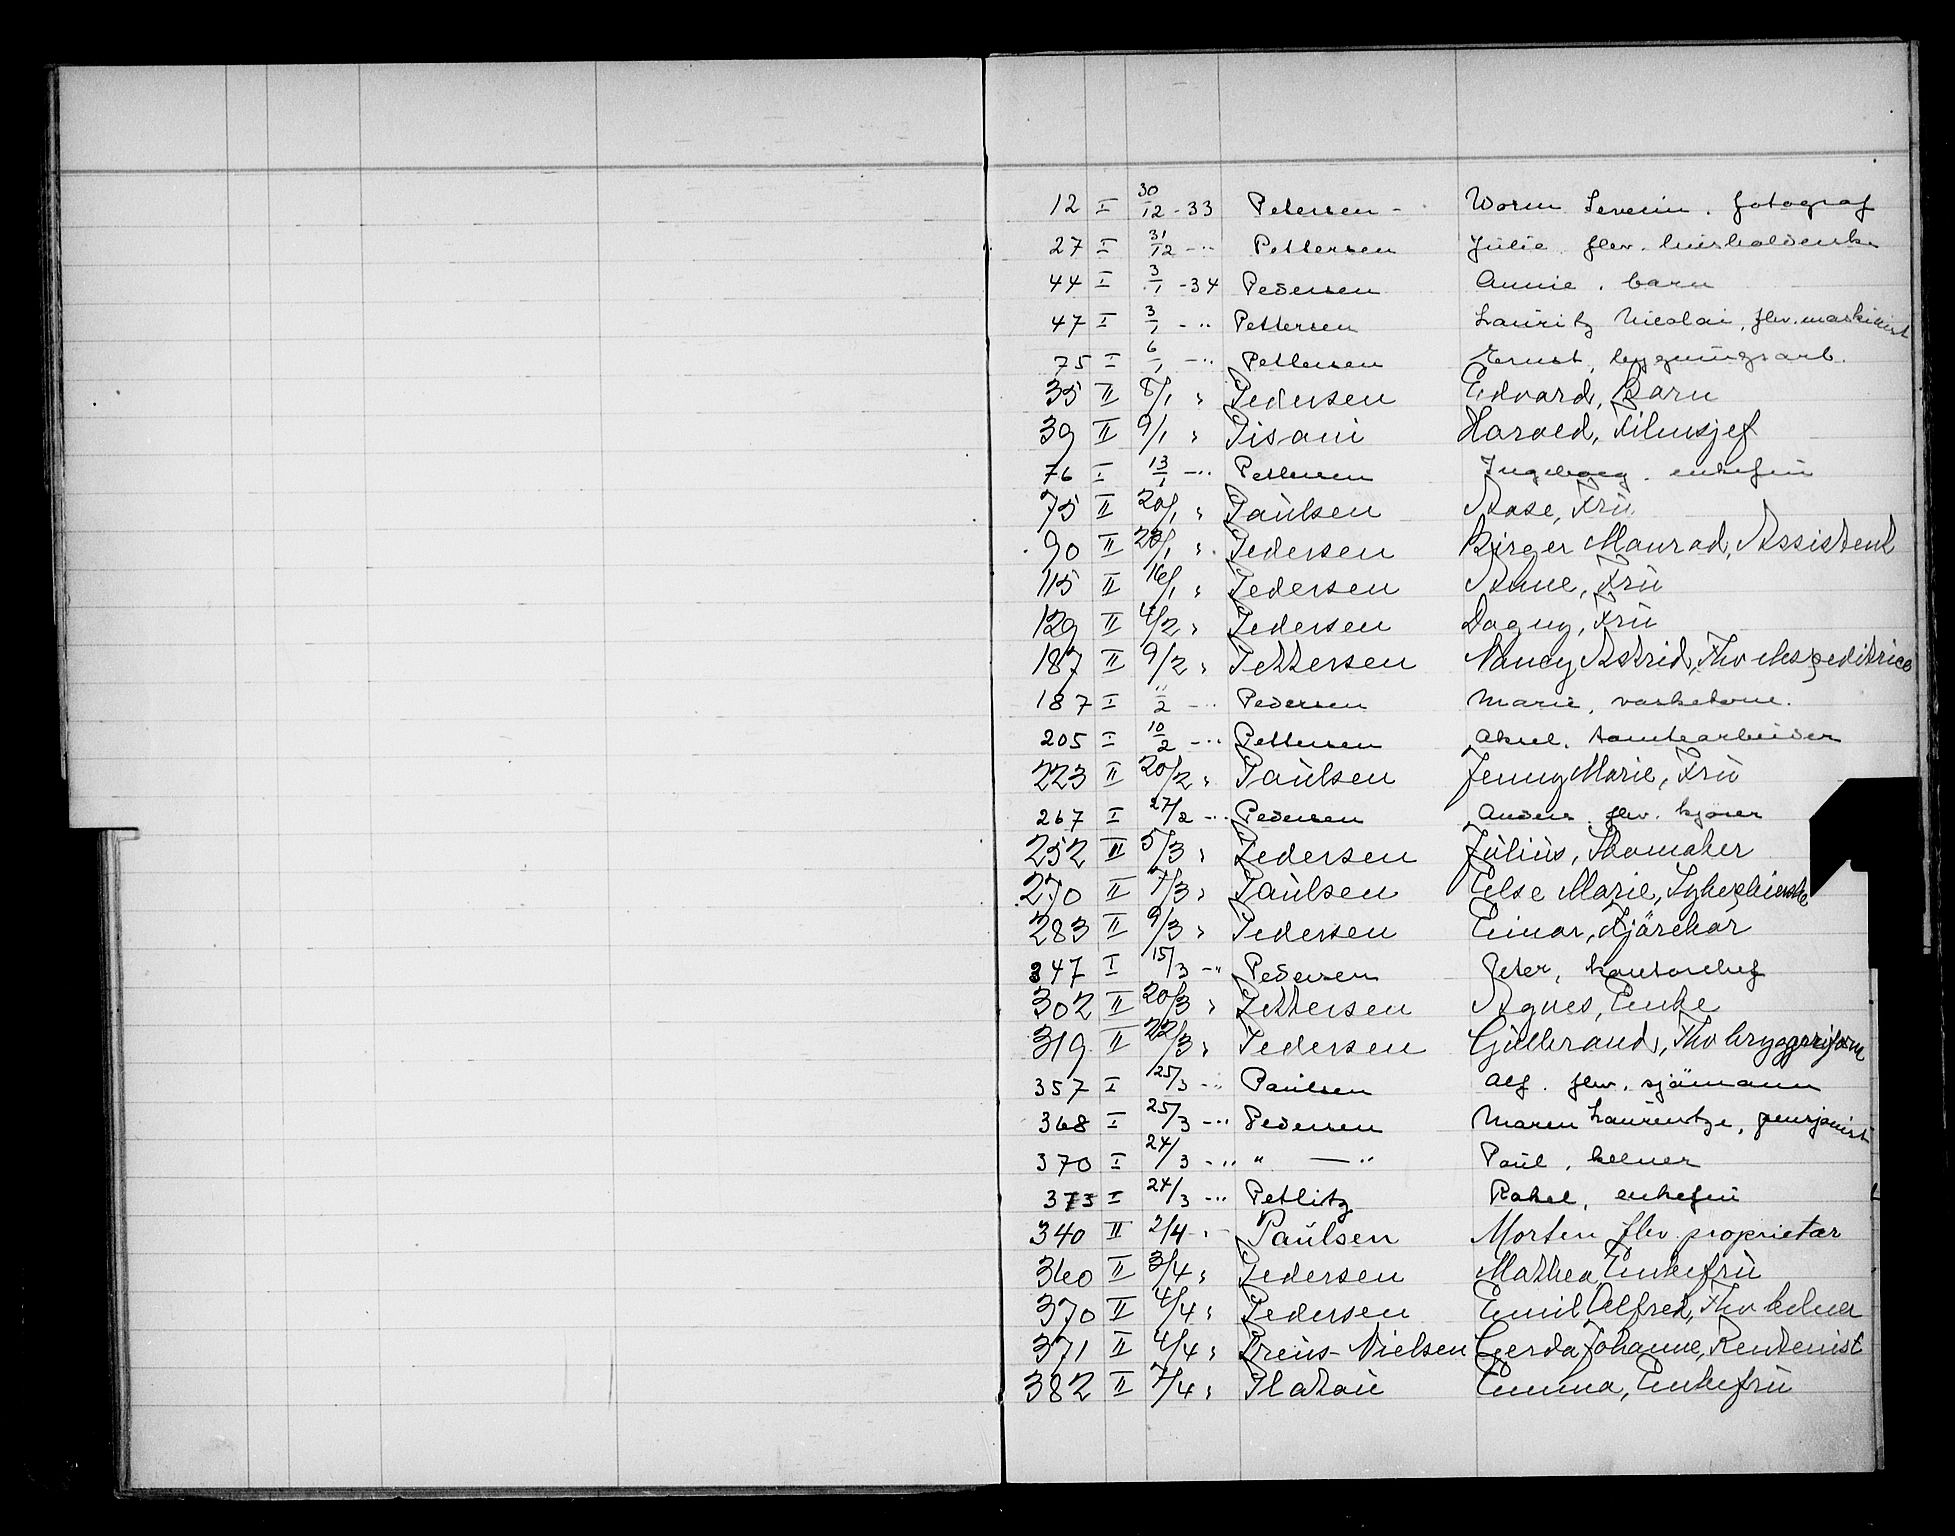 12 I 30/12 - 33 Petersen - Worm Severin. fotograf
27 I 31/12 - " Pettersen Julie flev. husholderske
44 I 3/1 - 34 Pedersen Annie, barn
47 I 3/1 - " Pettersen Lauritz Nicolai, flv. maskinist
75 I 6/1 - " Pettersen Ernst, bygningsarb.
35 II 8/1 " Pedersen Edvard, Barn
39 II 9/1 " Pisani Harald, Filmsjef
76 I 13/1 - " Pettersen Ingeborg. enkefru
75 II 20/1 " Paulsen Aase, Fru
90 II /1 " Pedersen Birger Monrad, Assistent
115 II 16/1 " Pedersen Fru
129 II 4/2 " Pedersen Dagny, Fru
187 II 9/2 " Pettersen Nancy Astrid, Fhv ekspeditrice
187 I "/2 - " Pedersen Marie, vaskekone.
205 I 10/2 - " Pettersen Aksel. tomtearbeider
223 II 20/2 " Paulsen Jenny Marie, Fru
267 I 27/2 - " Pedersen Anders flv. kjører
252 II 5/3 " Pedersen Julius, Skomaker
270 II 7/3 " Paulsen Else Marie, Sykepleierske
283 II 9/3 " Pedersen Einar, Kjørekar
347 I 15/3 - " Pedersen Peter, kontorchef
302 II 20/3 " Pettersen Agnes, Enke
319 II 22/3 " Pedersen Gulbrand, Fhv bryggeriform
357 I 25/3 - " Paulsen Alf. flv. sjømann
368 I 25/3 - " Pedersen Maren Laurentze, pensjonist
370 I 24/3 - " " — " Paul, kelner
373 I 24/3 - " Petlitz Rakel, enkefru
340 II 2/4 - " Paulsen Morten fhv proprietær
360 II 3/4 " Pedersen Mathea Enkefru
370 II 4/4 " Pedersen Emil Alfred, Fhv kelner
371 II 4/4 " Preus-Nielsen Gerda Johanne, Rentenist
382 II 7/4 " Platou Emma, Enkefru